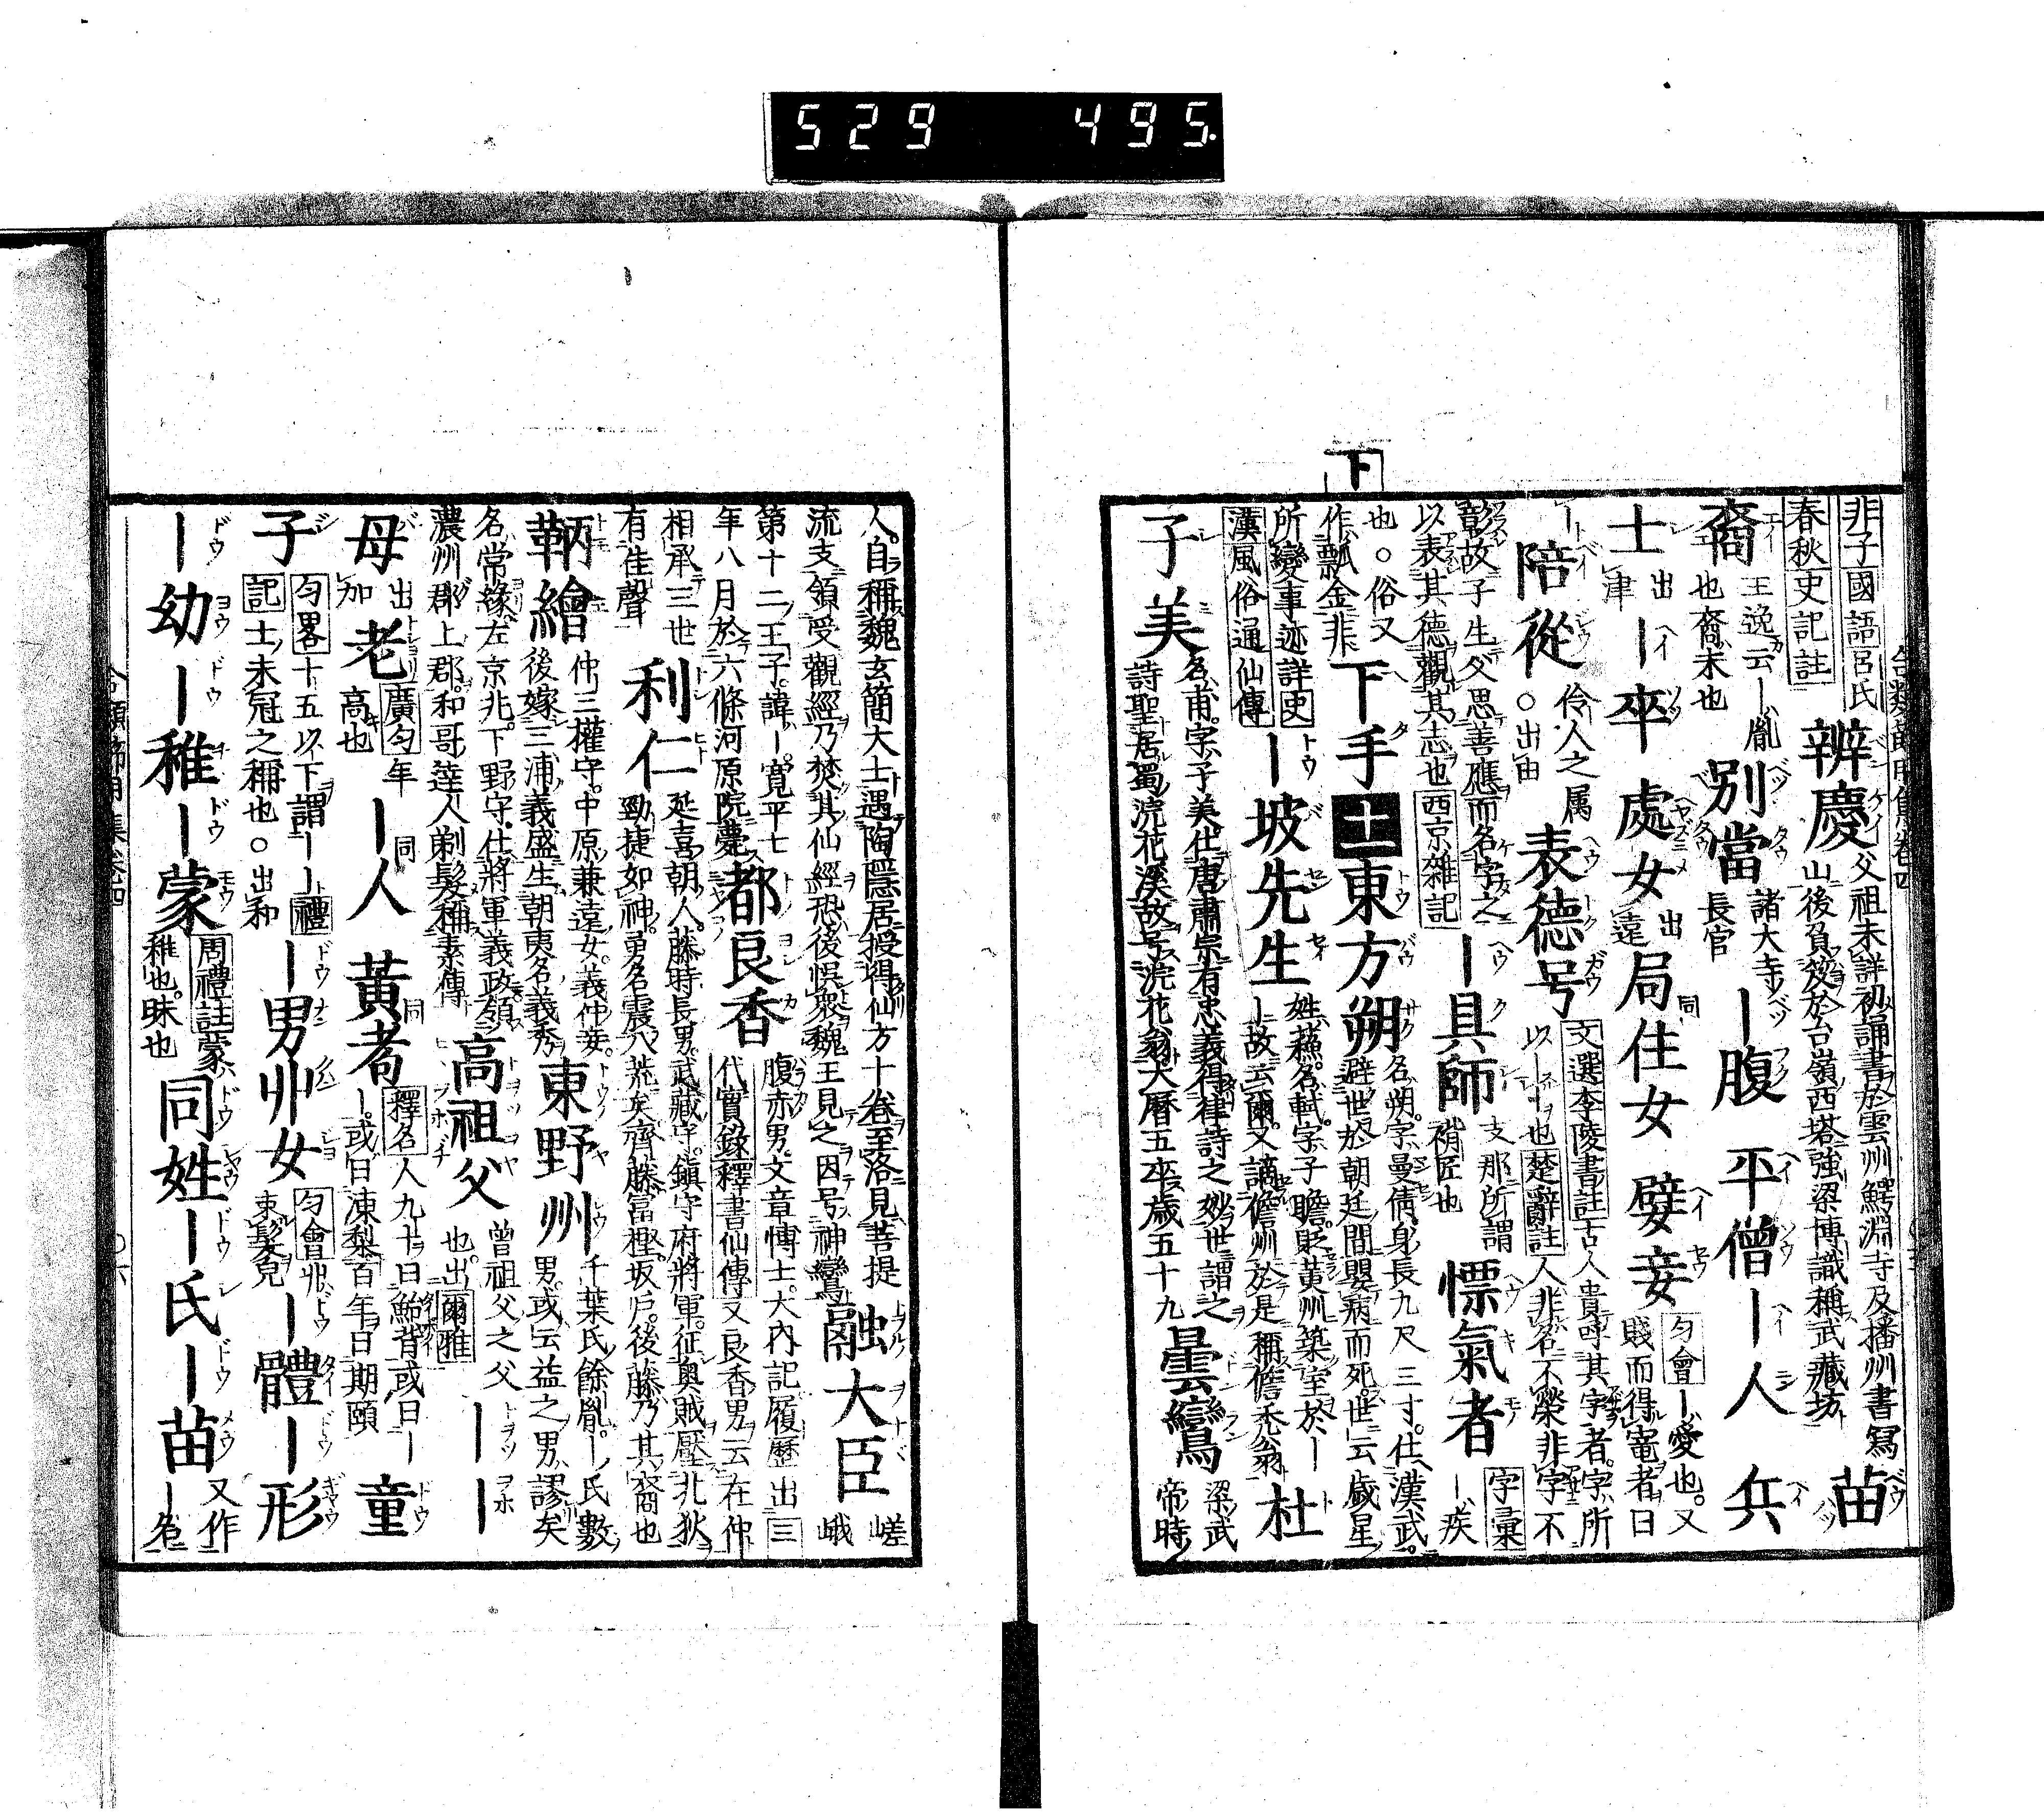 529 495.
ト
非子國語呂氏
春秋史記註
辨慶 父祖未詳初誦書於雲州鰐淵寺及播州書寫
山後負笈於台嶺西塔強梁博識稱武藏坊
苗
裔 王逸云ー胤
也裔末也
別當 諸大寺
長官
ー腹 平僧 ー人 兵
士 出
津
ー卒 處女 出
遠
局 同
住女 嬖妾 匀會ー愛也。又
賤而得寵者曰
ー
陪從 伶人之属
○出由
表德号 文選李陵書註古人貴呼其字者。字所
以ーー也楚辭註人非名不榮非字不
彰故子生父思善應而名字之
以表其德觀其志也西京雜記
ー具師 支那所謂
梢匠也
慓氣者 字彙
ー疾
也。○俗又
作瓢金非
下手 ト 東方朔 名朔。字曼倩。身長九尺三寸。仕漢武。
避世於朝廷間嬰病而死。世云歲星
所變事迹詳史
漢風俗通仙傳
ー坡先生 姓蘓。名軾。字子瞻。貶黄州築室於ー
ー故云爾。又謫儋州於是稱儋禿翁
杜
子美 名甫。字子美。仕唐肅宗有忠義得律詩之妙世謂之
詩聖居蜀浣花溪故号浣花翁大曆五卒歲五十九
曇鸞 梁武
帝時
人。自稱魏玄簡大士遇陶隱居授得仙方十卷至洛見菩提
流支領受觀經乃焚其仙經恐後悞衆魏王見之因号神鸞
融大臣 嵯
峨
第十二王子。諱ー。寛平七
年八月於六條河原院薨
都良香 腹赤男。文章博士。大内記履歷出三
代實錄釋書仙傳又良香男云在仲
相承三世
有佳聲
利仁 延喜朝人。藤時長男。武藏守。鎮守府將軍。征奥賊壓北狄
勁捷如神。勇名震八荒矣齊藤冨樫。坂戶。後藤乃其裔也
鞆繪 仲三權守。中原兼遠女。義仲妾。
後嫁三浦義盛生朝夷名義秀
東野州 千葉氏餘胤。ー氏數
男。或云益之男謬矣
名常緣左京兆。下野守。仕將軍義政領
濃州郡上郡。和哥達人剃髮稱素傳
高祖父 曾祖父之父
也。出爾雅
ーー
母 出
加
老 廣匀年
高也
ー人 同
黄耇 同
釋名人九十曰鮐背或曰ー
ー。或曰凍梨百年曰期頤
童
子 匀畧十五以下謂ーー禮
記士未冠之稱也。○出和
ー男 丱女 匀會丱
束髮皃
ー體 ー形
ー幼 ー稚 ー蒙 周禮註蒙
稚也。昧也
同姓 ー氏 ー苗 又作
ー名
合類節用集卷四